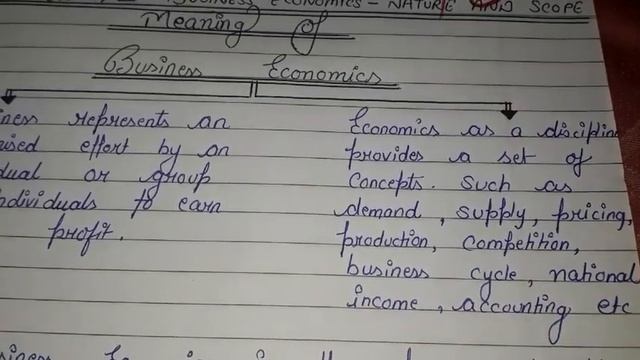 BUSINESS ECONOMICS - NATURE AND SCOPE
Meaning of
Business Economics
represents an
effort by an
or group
individuals to earn
profit.
Economics as a
provides a set of
concepts. Such as
demand, supply, pricing,
production, competition,
business cycle, national
income, accounting etc